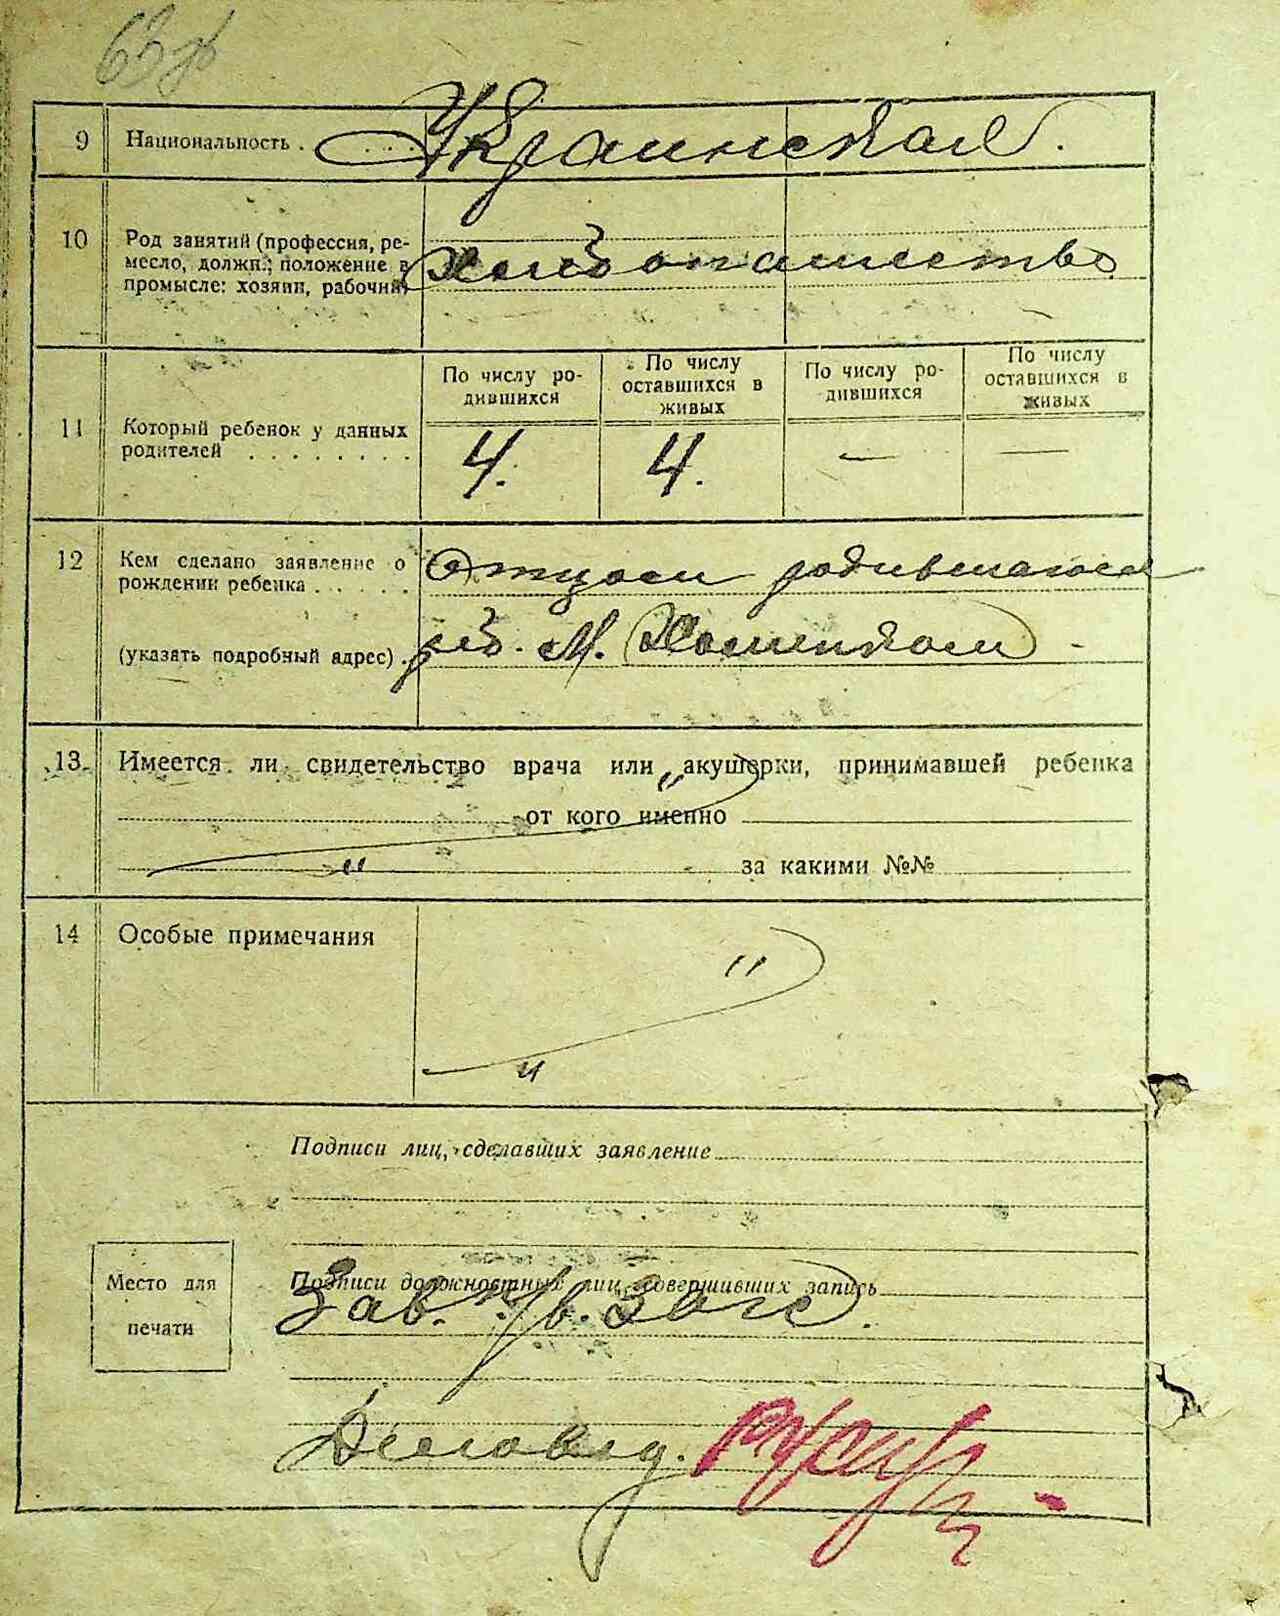 9 Национальность . . . . . Украинская.
10 Род занятий (профессия, ре-
месло, должн.; положение в
промысле: хозяин, рабочий)
Хлебопашество
По числу ро-
дившихся
По числу
оставшихся в
живых
По числу ро-
дившихся
По числу
оставшихся в
живых
11 Который ребенок у данных
родителей . . . . . . . .
4. 4. — —
12 Кем сделано заявление о
рождении ребенка . . . . .
Отцом родившагося
(указать подробный адрес) .
реб. М.
13 Имеется ли свидетельство врача или акушерки, принимавшей ребенка
" от кого именно
" за какими №№
14 Особые примечания
"
"
Подписи лиц, сделавших заявление
Место для
печати
Подписи должностных лиц, совершивших запись
Зав. Загс.
Деловод.